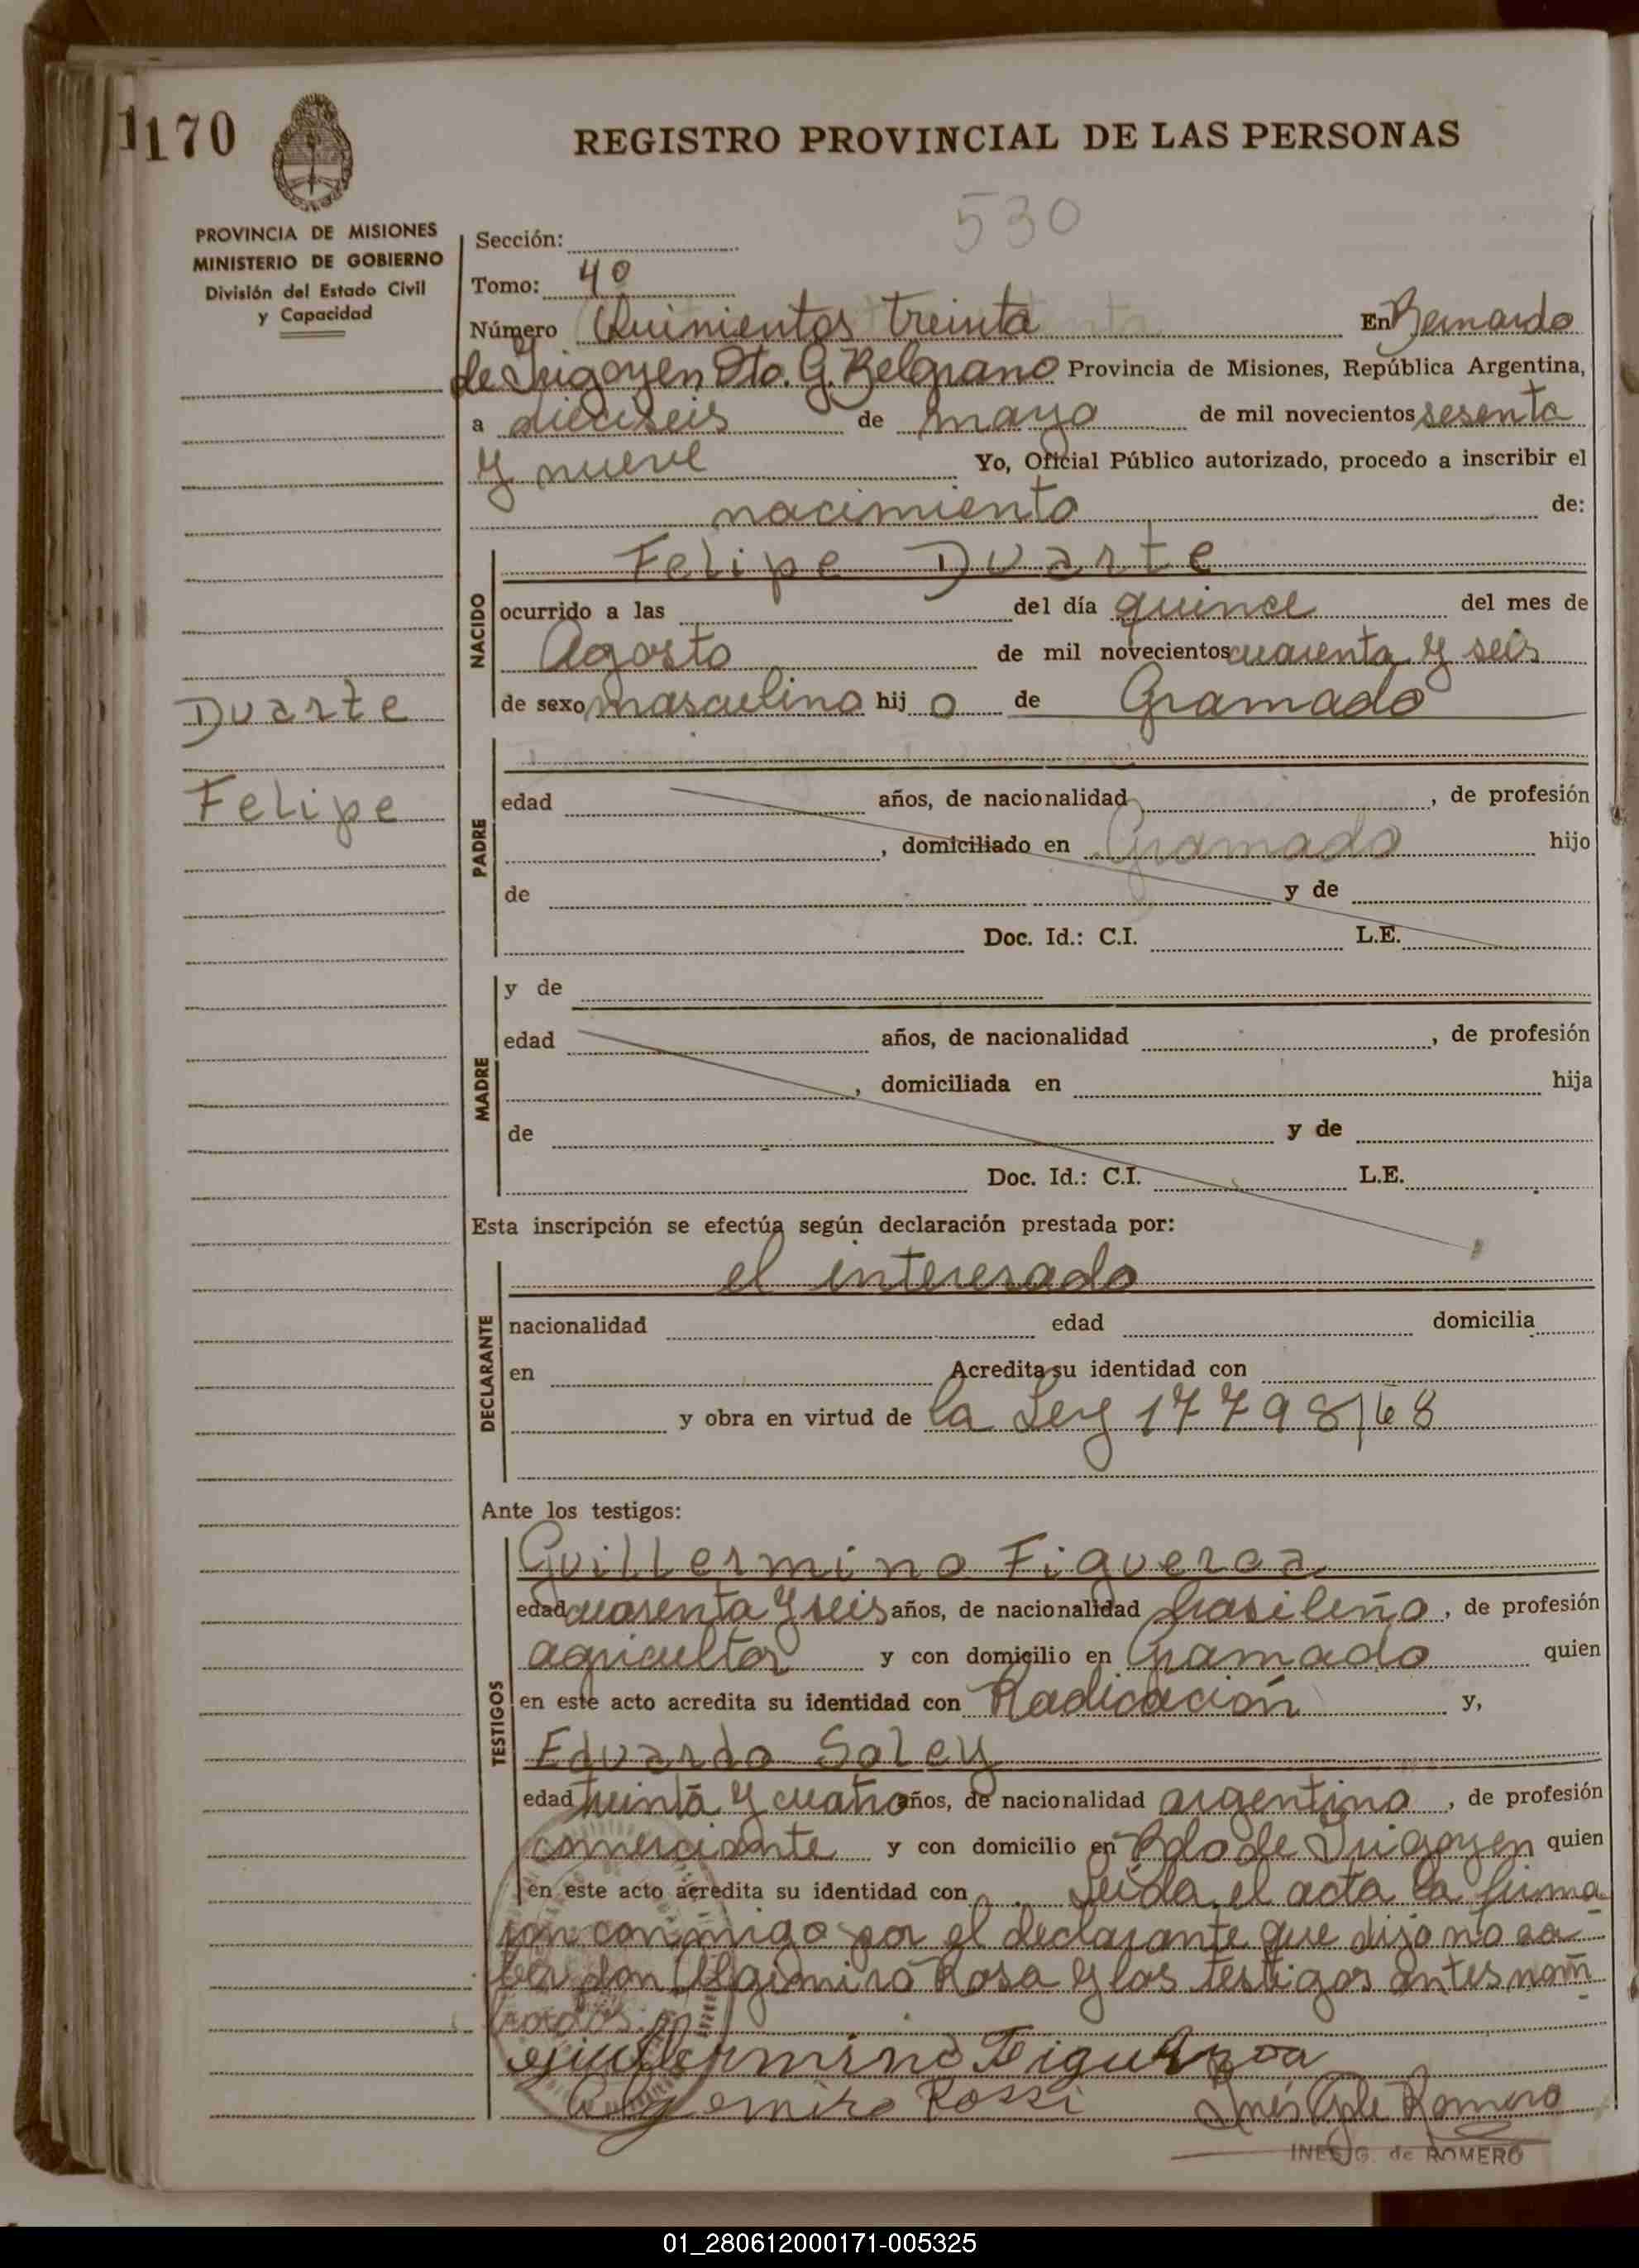 1170
REGISTRO PROVINCIAL DE LAS PERSONAS
530
PROVINCIA DE MISIONES
MINISTERIO DE GOBIERNO
División del Estado Civil
y Capacidad
Duarte
Felipe
Sección:
Tomo: 40
Número Quinientos treinta En Bernardo
de Irigoyen Dto. G. Belgrano Provincia de Misiones, República Argentina,
a dieciseis de mayo de mil novecientos sesenta
y nueve Yo, Oficial Público autorizado, procedo a inscribir el
nacimiento de:
NACIDO
Felipe Duarte
ocurrido a las del día quince del mes de
Agosto de mil novecientos cuarenta y seis
de sexo masculino hij o de Gramado
PADRE
edad años, de nacionalidad , de profesión
, domiciliado en Gramado hijo
de y de
Doc. Id.: C.I. L.E.
MADRE
y de
edad años, de nacionalidad , de profesión
, domiciliada en hija
de y de
Doc. Id.: C.I. L.E.
Esta inscripción se efectúa según declaración prestada por:
DECLARANTE
el interesado
nacionalidad edad domicilia
en Acredita su identidad con
y obra en virtud de la Ley 17798/68
Ante los testigos:
TESTIGOS
Guillermino Figueroa
edad cuarenta y seis años, de nacionalidad brasileño, de profesión
agricultor y con domicilio en Gramado quien
en este acto acredita su identidad con Radicación y,
Eduardo Soley
edad treinta y cuatro años, de nacionalidad argentino, de profesión
comerciante y con domicilio en Bdo de Irigoyen quien
en este acto acredita su identidad con Leída el acta la firma
ron conmigo por el declarante que dijo no sa
ber don Algimiro Rosa y los testigos antes nom
brados
Guillermino Figueroa
Algemiro Rossi Inés G de Romero
INES G. de ROMERO
01_280612000171-005325